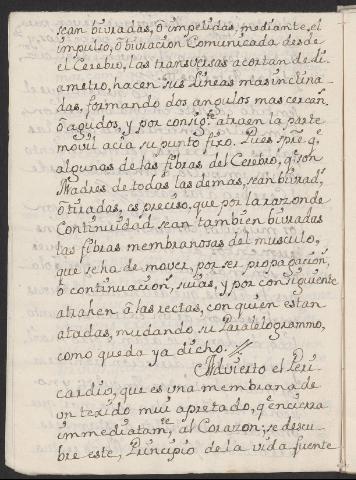 sean buvradas, ō impelidas, mediante, el
impulso, ō bivracion Comunicada desde
el Cerebro, las transversas acortan de di
ametro, hacen sus Lineas mas inclina
das, formando dos angulos mas cercan.
ō agudos, y por consig.te atraen la parte
movil acia su punto fixo. Pues spre q.e
algunas de las fibras del Cerebro, q.e son
Madres de todas las demas, sean buvrad.s
ō tiradas, es preciso, que por la razon de
Continuidad sean tambien buvradas
las fibras membranosas del musculo,
que se ha de mover, por ser propagacion,
ō continuacion, suias, y por consiguiente
atrahen ā las rectas, con quien estan
atadas, mudando su Paralelogrammo,
como queda ya dicho. //
Advierto el Peri
cardio, que es una membrana de
un texido mui apretado, q.e encierra
immediatam.te al Corazon; se descu
bre este, Principio de la vida, fuente